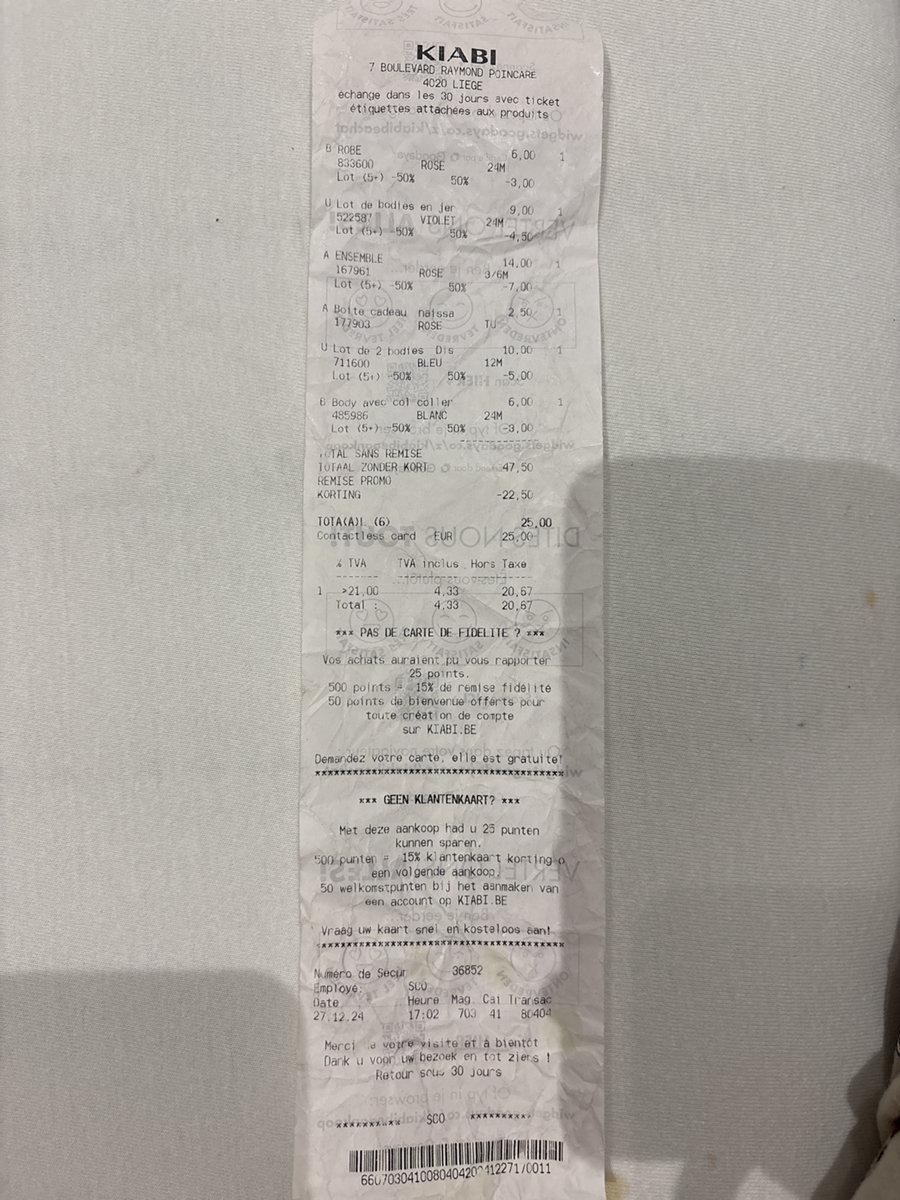 KIABI
7 BOULEVARD RAYMOND POINCARE
4020 LIEGE
echange dans les 30 jours avec ticket
étiquettes attachées aux produits
B ROBE 6,00 1
833600 ROSE 24M
Lot (5+) -50% 50% -3,00
U Lot de bodies en jer 9,00 1
522587 VIOLET 24M
Lot (5+) -50% 50% -4,50
A ENSEMBLE 14,00 1
167961 ROSE 3/6M
Lot (5+) -50% 50% -7,00
A Boite cadeau naissa 2,50 1
177903 ROSE TU
U Lot de 2 bodies Dis 10,00 1
711600 BLEU 12M
Lot (5+) -50% 50% -5,00
B Body avec col coller 6,00 1
485986 BLANC 24M
Lot (5+) -50% 50% -3,00
TOTAL SANS REMISE
TOTAAL ZONDER KORT 47,50
REMISE PROMO
KORTING -22,50
TOTA(A)L (6) 25,00
Contactless card EUR 25,00
% TVA TVA inclus Hors Taxe
1 >21,00 4,33 20,67
Total : 4,33 20,67
*** PAS DE CARTE DE FIDELITE ? ***
Vos achats auraient pu vous rapporter
25 points.
500 points = 15% de remise fidélité
50 points de bienvenue offerts pour
toute création de compte
sur KIABI.BE
Demandez votre carte, elle est gratuite!
****************************************
*** GEEN KLANTENKAART? ***
Met deze aankoop had u 25 punten
kunnen sparen.
500 punten = 15% klantenkaart korting o
een volgende aankoop.
50 welkomstpunten bij het aanmaken van
een account op KIABI.BE
Vraag uw kaart snel en kosteloos aan!
****************************************
Numéro de Sécur 36852
Employé: SCO
Date Heure Mag. Cai Transac
27.12.24 17:02 703 41 80404
Merci de votre visite et à bientôt
Dank u voor uw bezoek en tot ziens !
Retour sous 30 jours
********** SCO **********